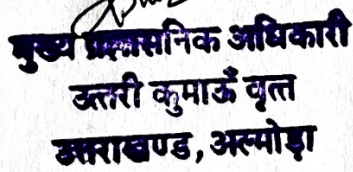 मुख्य प्रशासनिक अधिकारी
उत्तरी कुमाऊँ वृत्त
उत्तराखण्ड, अल्मोड़ा